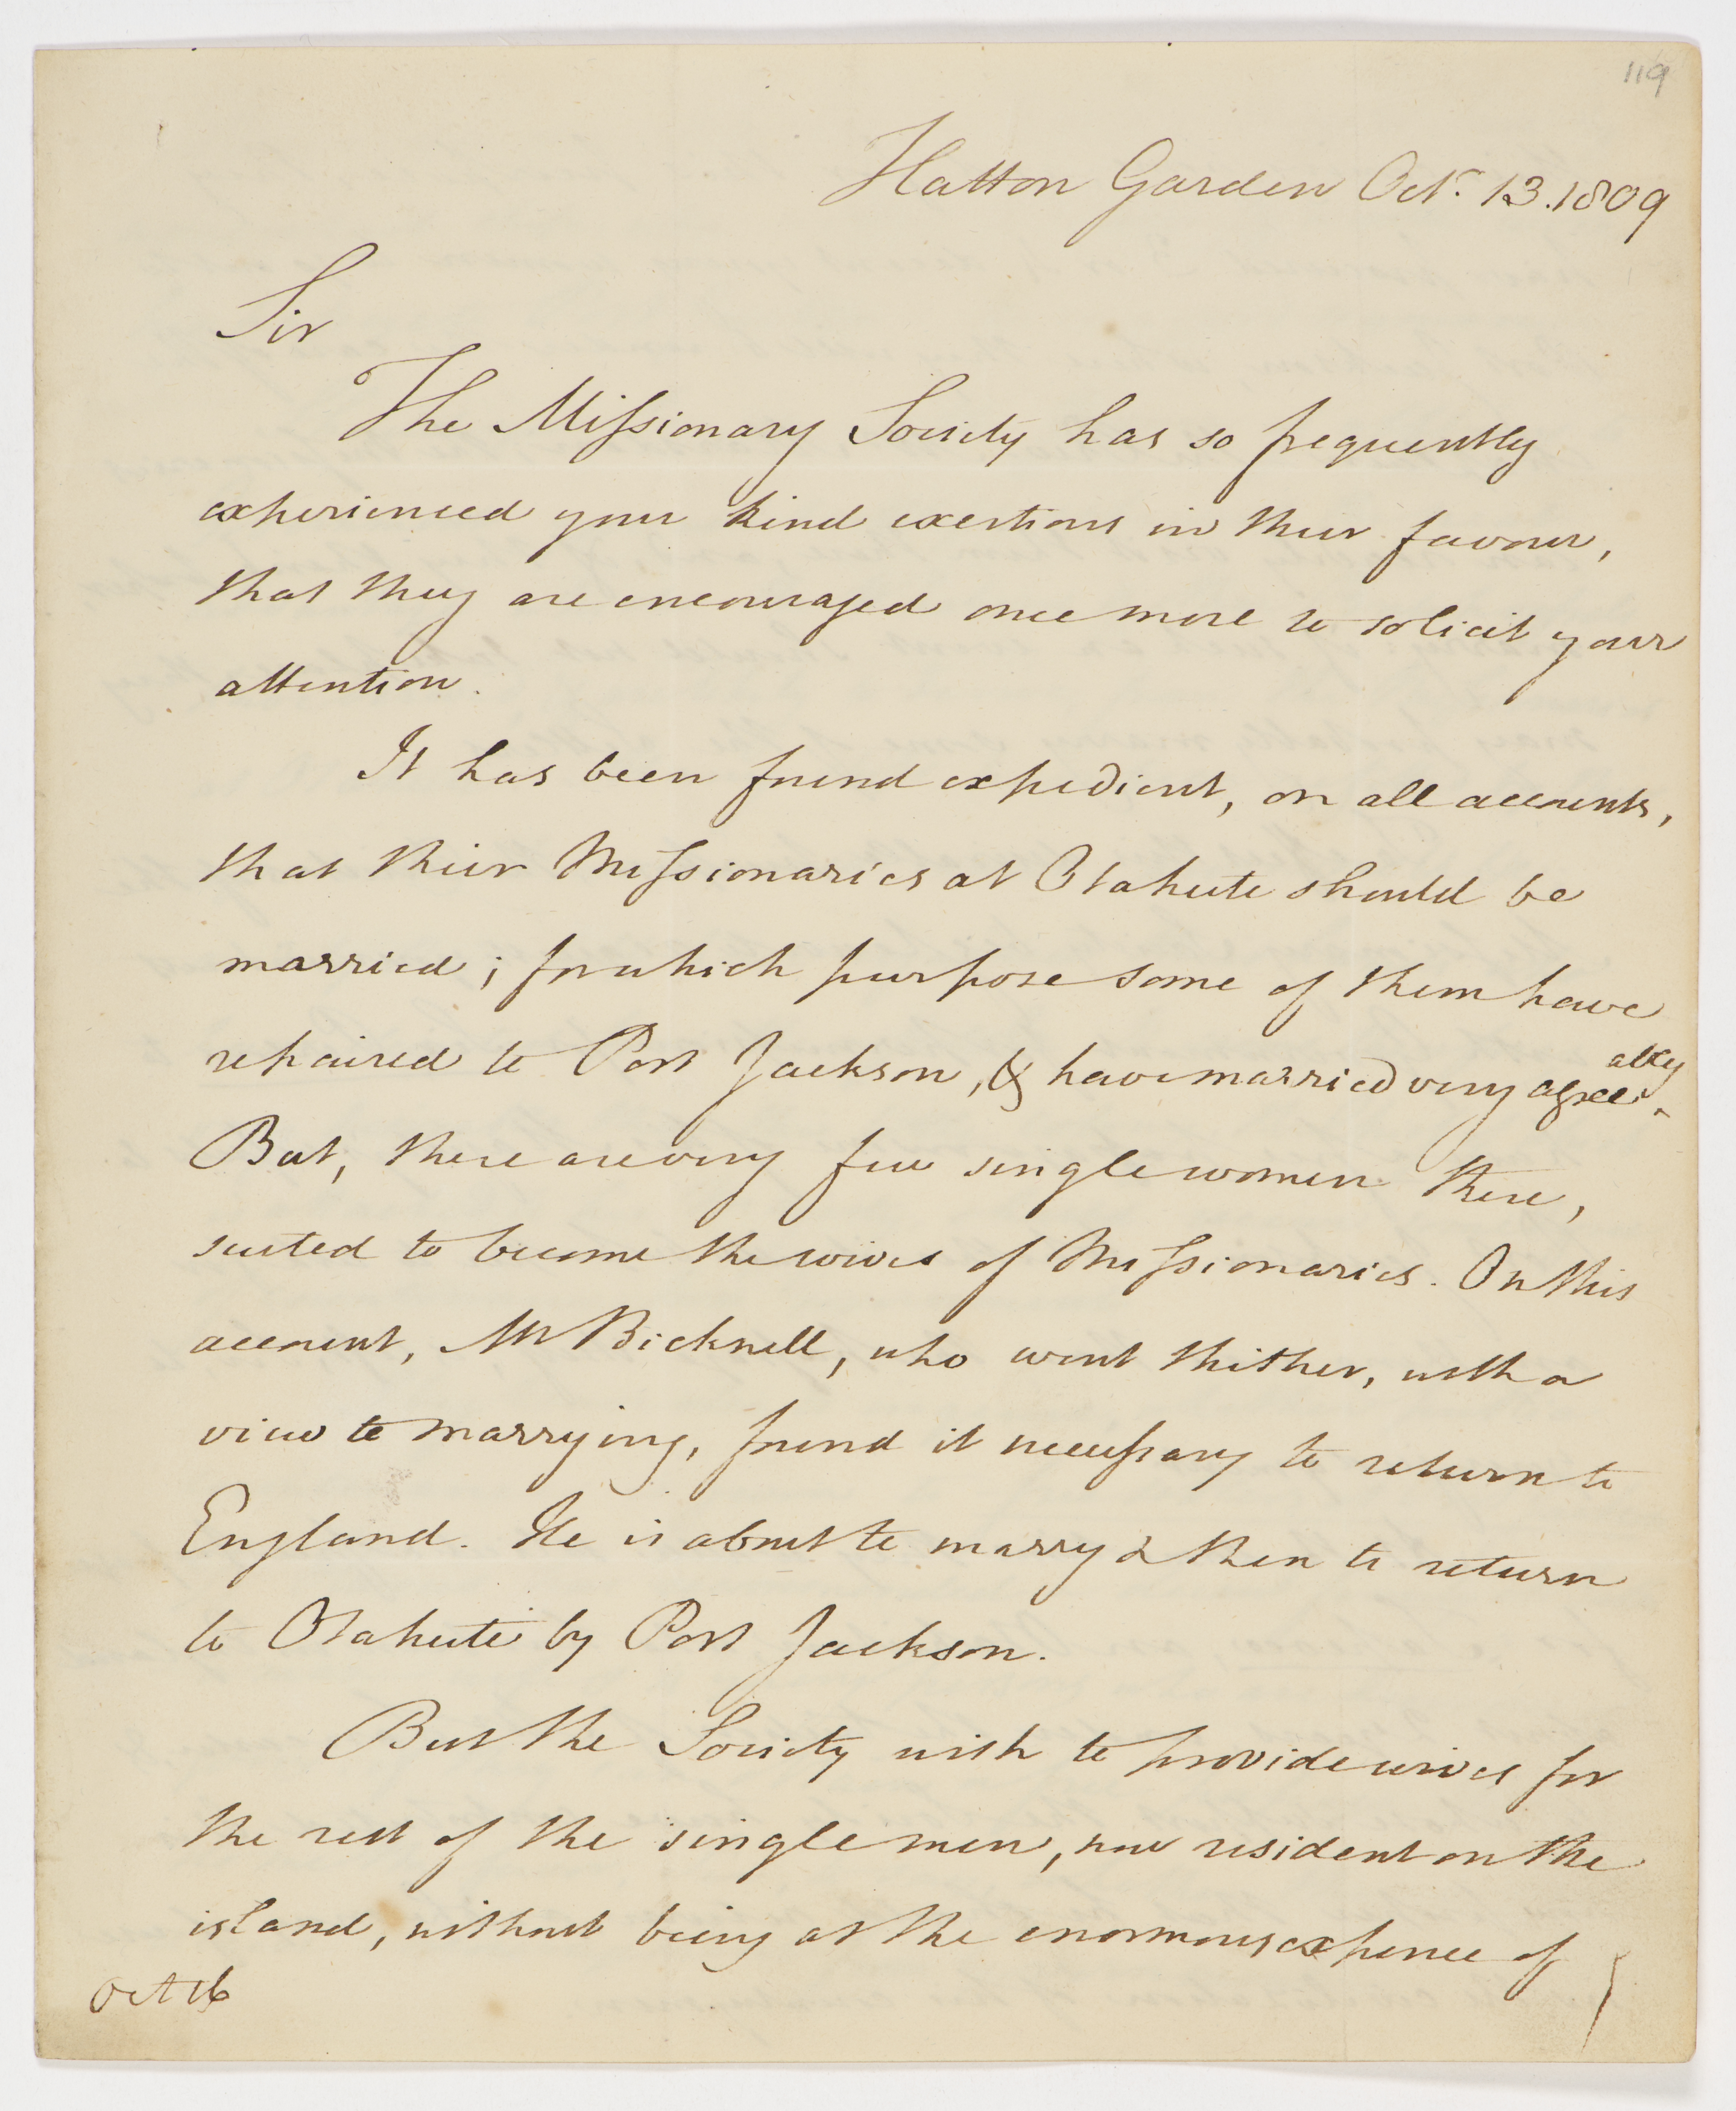 119
Hatton Garden Octr. 13. 1809
Sir
The Missionary Society has so frequently
experienced your kind exertions in their favour,
that they are encouraged once more to solicit your
attention.
It has been found expedient, on all accounts,
that their Missionaries at Otaheite should be
married; for which purpose some of them have
repaired to Port Jackson, & have married very agree-
ably
But, there are very few single women there,
suited to become the wives of Missionaries. On this
account, Mr Bicknell, who went thither, with a
view to marrying, found it necessary to return to
England. He is about to marry & then to return
to Otaheite by Port Jackson.
But the Society wish to provide wives for
the rest of the single men, now resident on the
island, without being at the enormous expence of
Oct 16